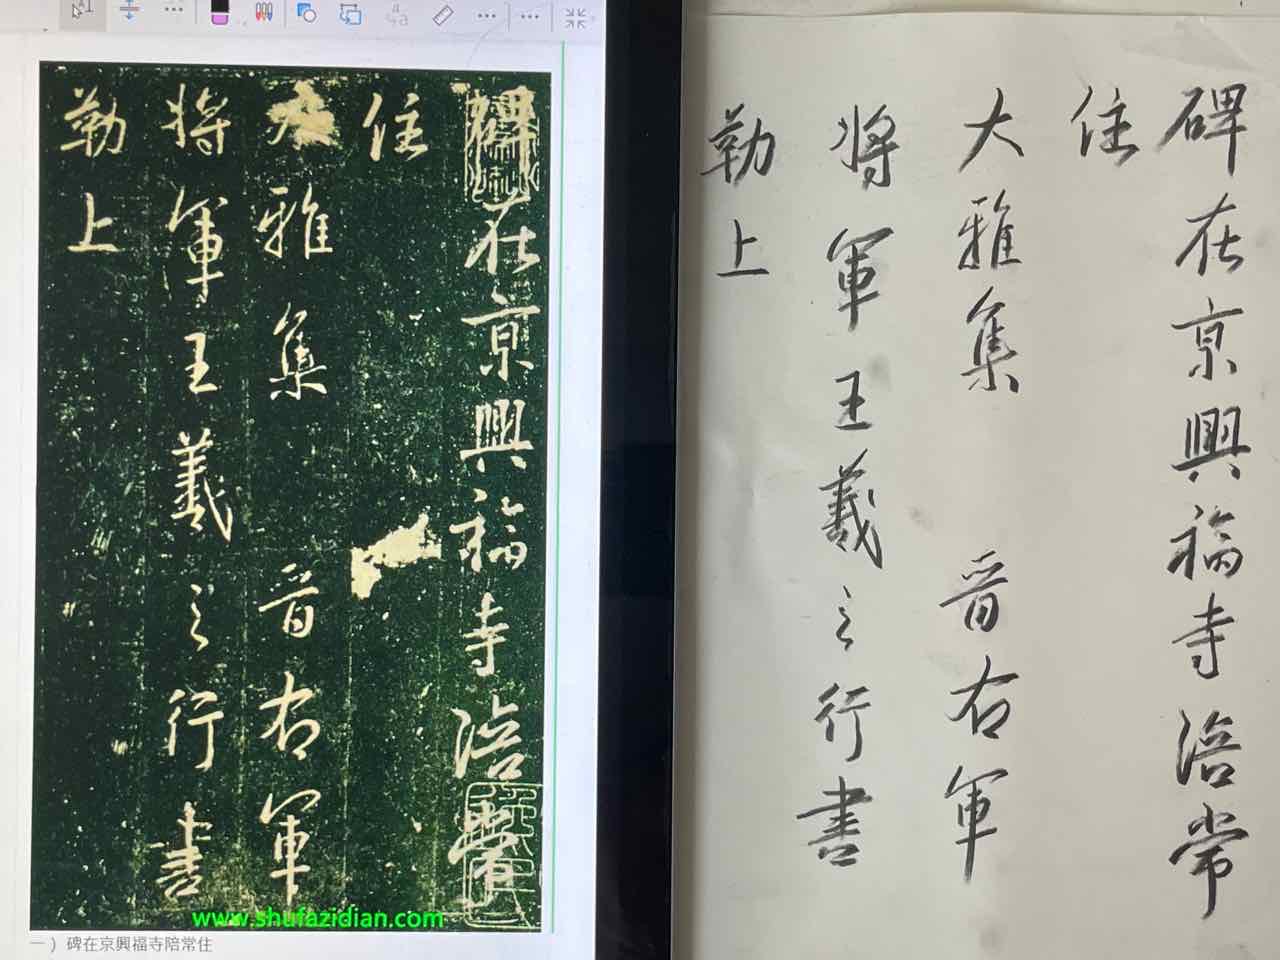 碑在京興福寺陪常
住
大雅集 晉右軍
將軍王羲之行書
勒上
www.shufazidian.com
一）碑在京興福寺陪常住
碑在京興福寺陪常
住
大雅集 晉右軍
將軍王羲之行書
勒上